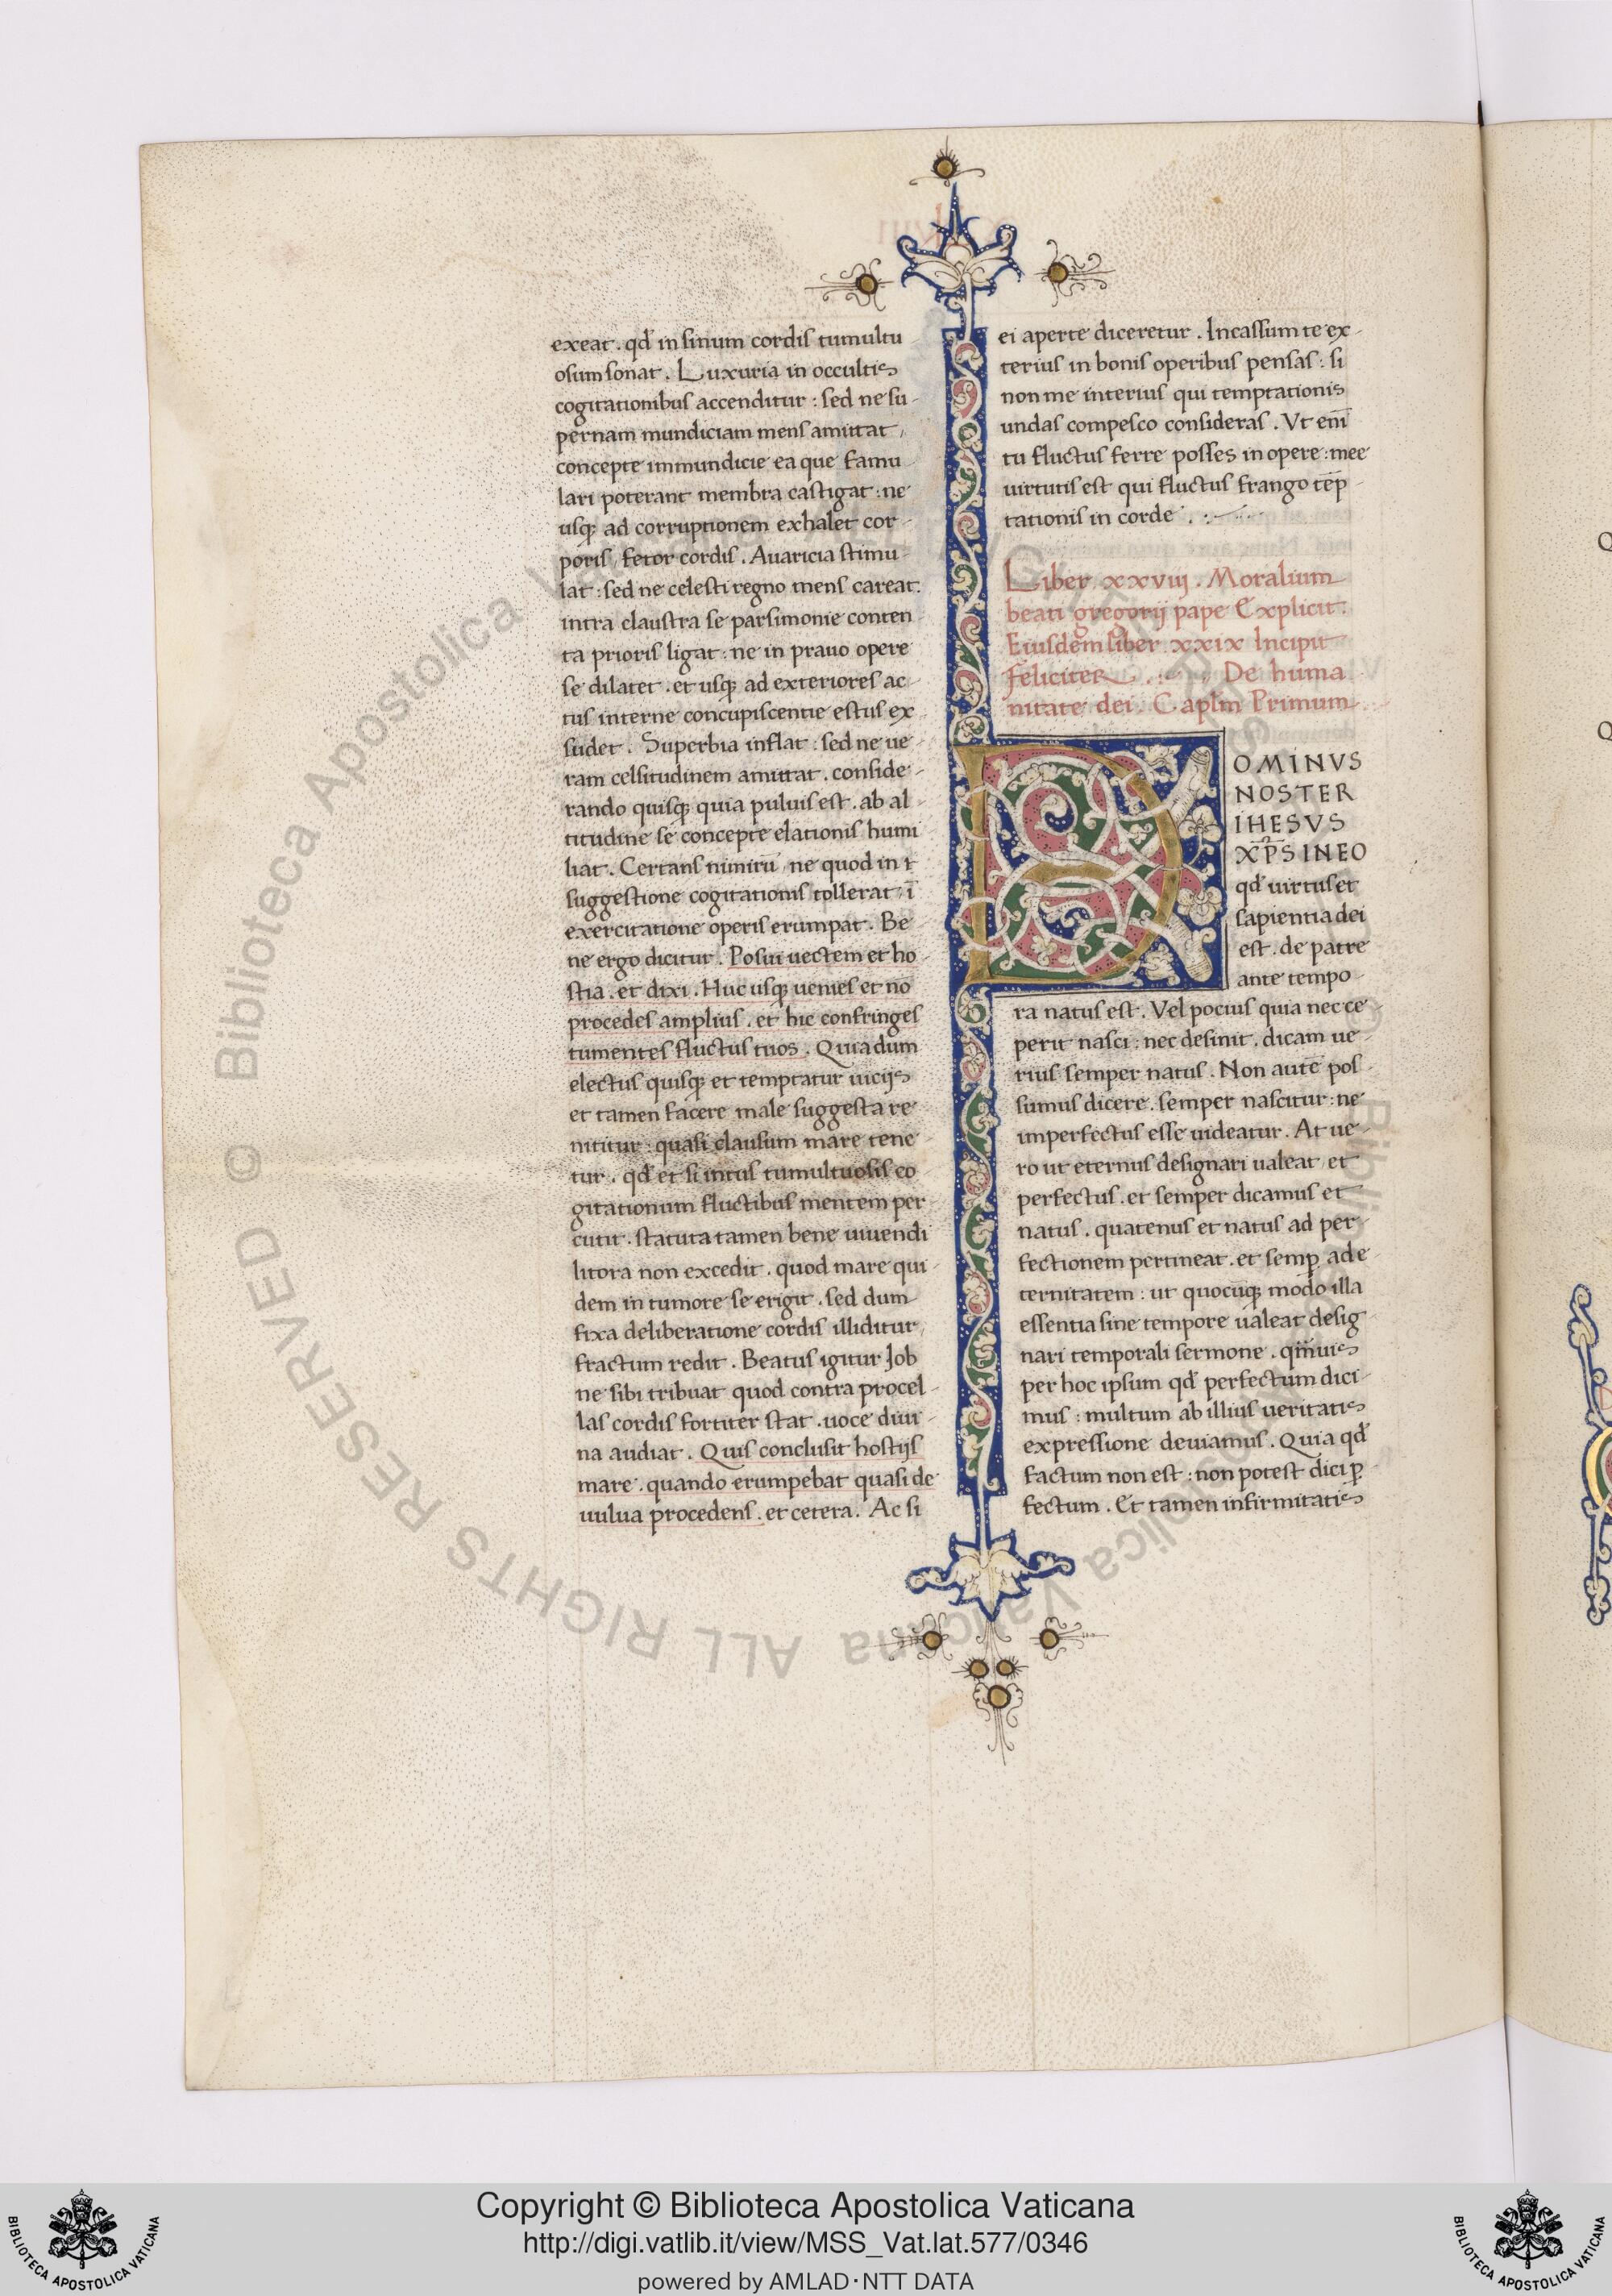 exeat . qd̄ in sinum cordis tumultu
osum sonat . Luxuria in occultis
cogitationibus accenditur : sed ne su-
pernam mundiciam mens amittat ,
concepte immundicie ea que famu
lari poterant membra castigat : ne
usq; ad corruptionem exhalet cor-
poris , fetor cordis . Auaricia stimu-
lat : sed ne celesti regno mens careat .
intra claustra se parsimonie conten
ta prioris ligat : ne in prauo opere
se dilatet . et usq; ad exteriores ac-
tus interne concupiscentie estus ex
sudet . Superbia inflat : sed ne ue-
ram celsitudinem amittat . conside-
rando quisq; quia puluis est . ab al-
titudine se concepte elationis humi
liat . Certans nimirū , ne quod in t
suggestione cogitationis tollerat , ī
exercitatione operis erumpat . Be-
ne ergo dicitur . Posui uectem et ho-
stia . et dixi . Huc usq; uenies et nō
procedes amplius . et hic confringes
tumentes fluctus tuos . Quia dum
electus quisq; et temptatur uicijs
et tamen facere male suggesta re-
nititur : quasi clausum mare tene-
tur . qd̄ et si intus tumultuosis co-
gitationum fluctibus mentem per
cutit . statuta tamen bene uiuendi
litora non excedit . quod mare qui-
dem in tumore se erigit . sed dum
fixa deliberatione cordis illiditur ,
fractum redit . Beatus igitur Job
ne sibi tribuat quod contra procel-
las cordis fortiter stat . uoce diui-
na audiat . Quis conclusit hostijs
mare . quando erumpebat quasi de
uulua procedens . et cetera . Ac si
ei aperte diceretur . Incassum te ex-
terius in bonis operibus pensas : si
non me interius qui temptationis
undas compesco consideras . Vt enī
tu fluctus ferre posses in opere : mee
uirtutis est qui fluctus frango tēp-
tationis in corde .
Liber xxviij . Moralium
beati gregorij pape Explicit .
Eiusdem liber xxix Incipit
feliciter . De huma
nitate dei . Caplm̄ Primum .
DOMINVS
NOSTER
IHESVS
XP̄S IN EO
qd̄ uirtus et
sapientia dei
est . de patre
ante tempo-
ra natus est . Vel pocius quia nec ce-
perit nasci : nec desinit . dicam ue-
rius semper natus . Non autē pos-
sumus dicere . semper nascitur : ne
imperfectus esse uideatur . At ue-
ro ut eternus designari ualeat , et
perfectus . et semper dicamus et
natus . quatenus et natus ad per-
fectionem pertineat . et semp̱ ad e-
ternitatem : ut quocūq; modo illa
essentia sine tempore ualeat desig
nari temporali sermone . qm̄uis
per hoc ipsum qd̄ perfectum dici-
mus : multum ab illius ueritatis
expressione deuiamus . Quia qd̄
factum non est : non potest dici p̱
fectum . Et tamen infirmitatis
Q
Q
© Biblioteca Apostolica Vaticana ALL RIGHTS RESERVED
Copyright © Biblioteca Apostolica Vaticana
http://digi.vatlib.it/view/MSS_Vat.lat.577/0346
powered by AMLAD·NTT DATA
BIBLIOTECA APOSTOLICA VATICANA
BIBLIOTECA APOSTOLICA VATICANA